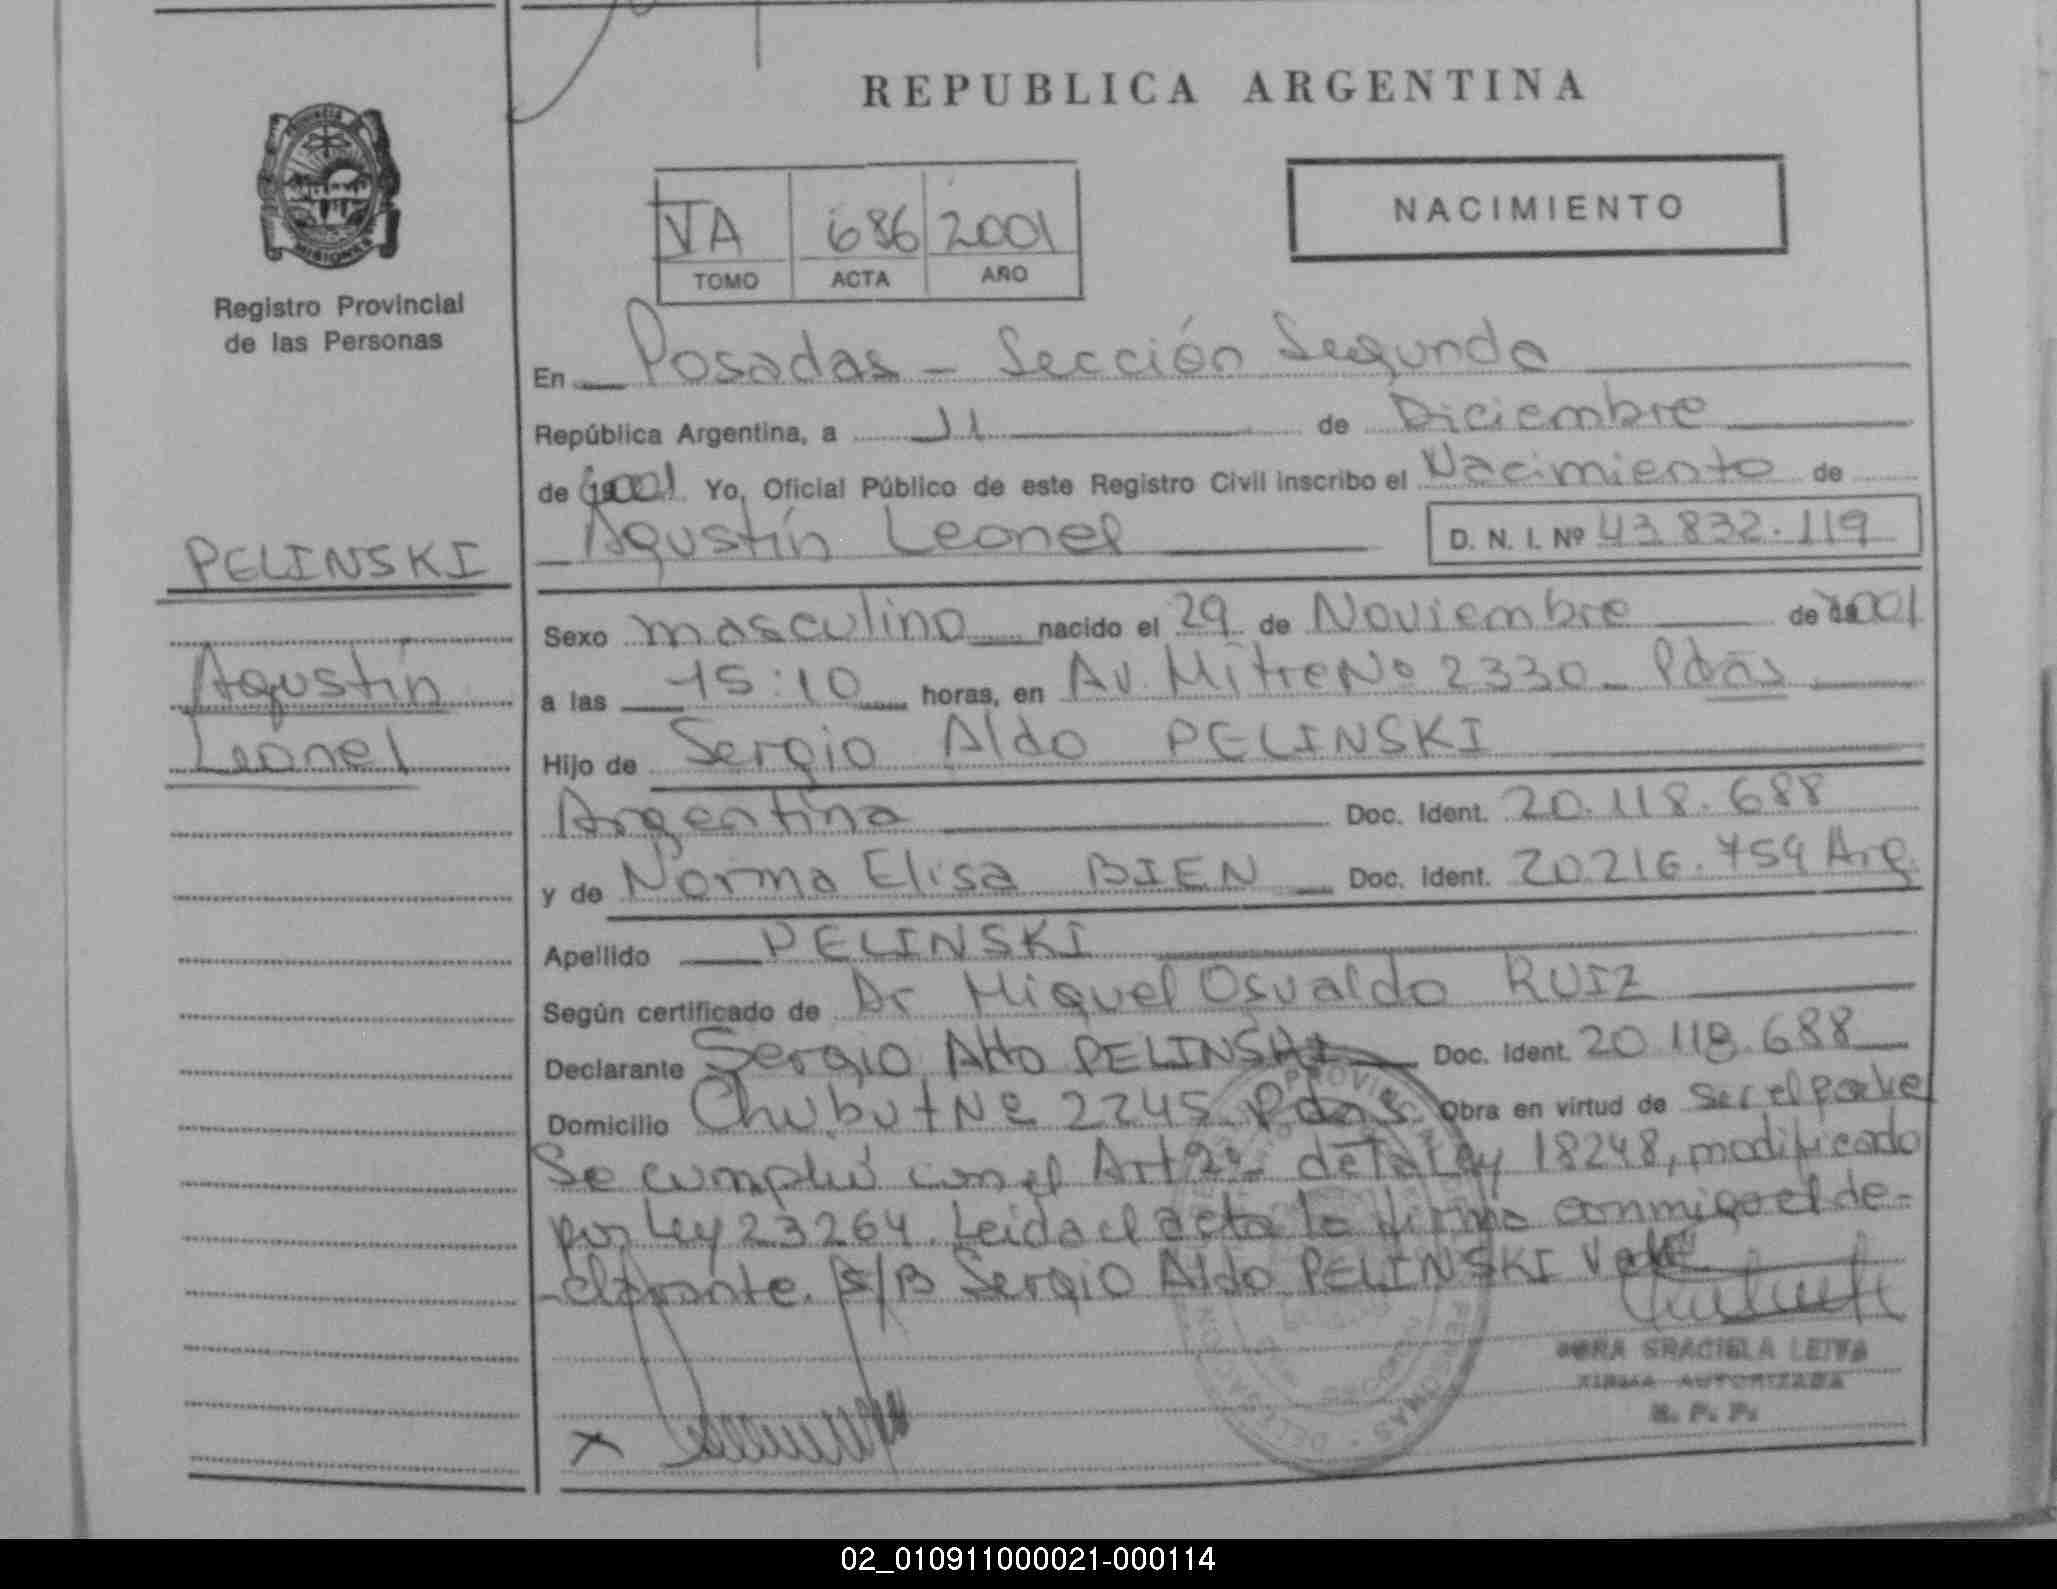 REPUBLICA ARGENTINA
PROVINCIA DE
MISIONES
Registro Provincial
de las Personas
NACIMIENTO
VA 686 2001
TOMO ACTA AÑO
En Posadas - Sección Segunda
República Argentina, a 11 de Diciembre
de 2001 Yo, Oficial Público de este Registro Civil inscribo el Nacimiento de
Agustín Leonel D. N. I. Nº 43 832.119
PELINSKI
Agustín
Leonel
Sexo masculino nacido el 29 de Noviembre de 2001
a las 15:10 horas, en Av. Mitre No 2330 - Pdas
Hijo de Sergio Aldo PELINSKI
Argentina Doc. Ident. 20.118.688
y de Norma Elisa BIEN Doc. Ident. 20216.759 Arg.
Apellido PELINSKI
Según certificado de Dr Miguel Osvaldo RUIZ
Declarante Sergio Aldo PELINSKI Doc. Ident. 20 118.688
Domicilio Chubut Nº 2245 Pdas Obra en virtud de ser el padre
Se cumplió con el Art 2º de la Ley 18248, modificado
por Ley 23264. Leida el acta la firma conmigo el de-
-clarante. S/B Sergio Aldo PELINSKI Vale
GRACIELA LEIVA
FIRMA AUTORIZADA
R. P. P.
X
02_010911000021-000114